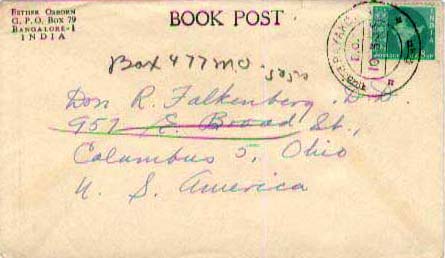 ESTHER OSBORN
G. P. O. BOX 79
BANGALORE-1
INDIA
BOOK POST
Box 477 M.O.
Don R. Falkenberg, D.D.
957 E. Broad St.,
Columbus 5, Ohio
U. S. America
INDIA